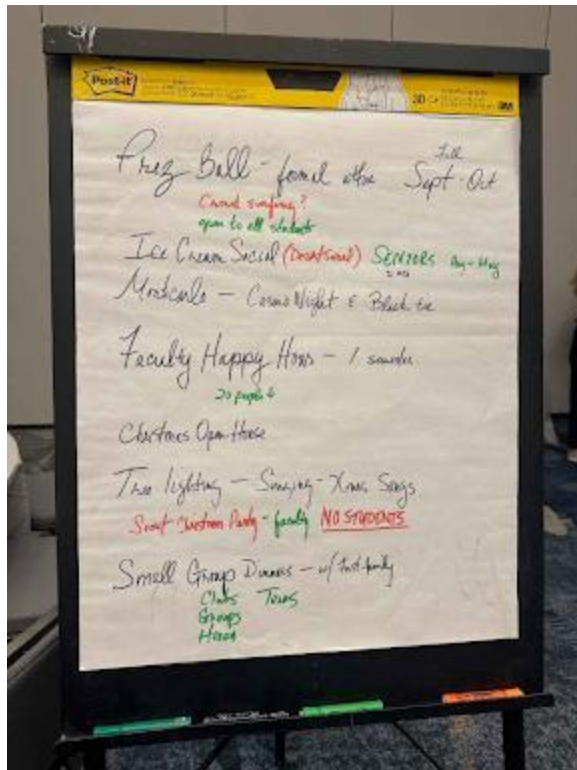 Post-it
3M
Prez Ball - formal attire Fall Sept - Oct
Crowd surfing?
open to all students
Ice Cream Social (Donations) SENIORS Aug - May
Montecarlo - Casino Night & Black tie
Faculty Happy Hour - 1 semester
20 people
Christmas Open House
Tree lighting - Singing - Xmas Songs
Christmas Party - faculty NO STUDENTS
Small Group Dinners - w/ first family
Clubs Teams
Groups
Honors